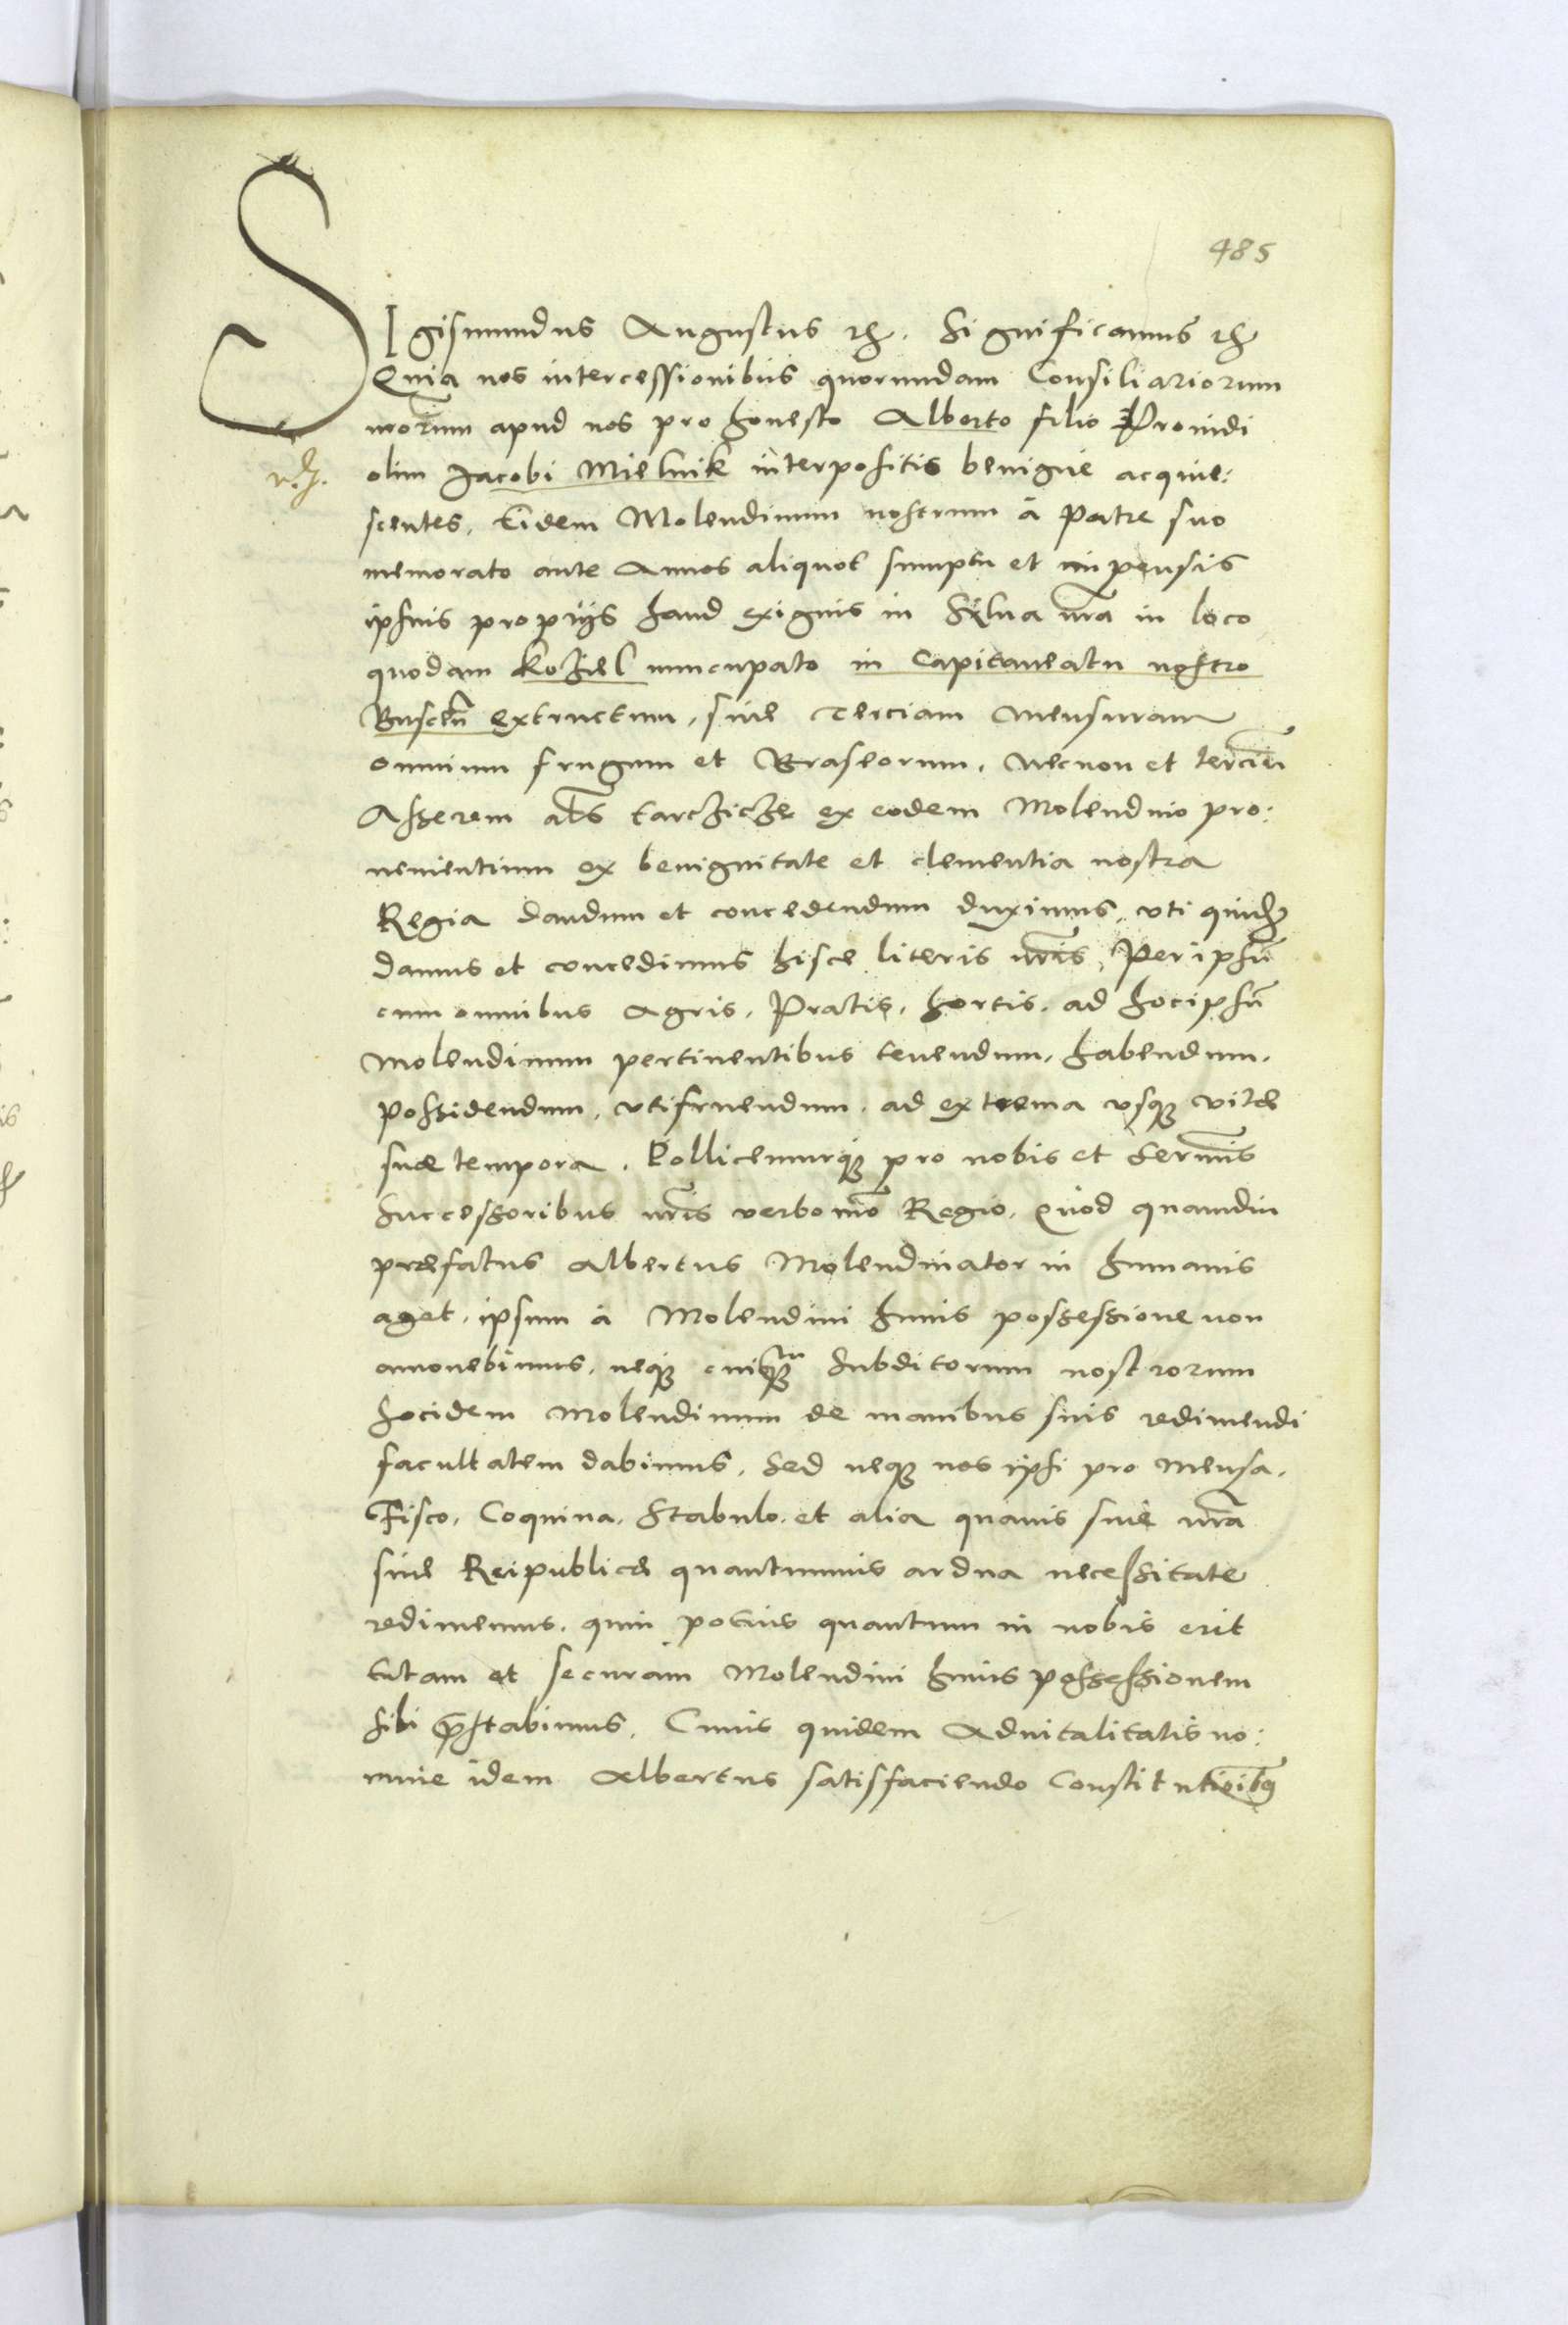 485
SIgismundus Augustus etc. Significamus etc
Quia nos intercessionibus quorundam Consiliariorum
nr̃orum apud nos pro honesto Alberto filio Prouidi
olim Jacobi Mielnik interpositis benigne acquie:
scentes, Eidem Molendinum nostrum à Patre suo
memorato ante Annos aliquot sumptu et impensis
ipsius proprijs haud exiguis in Silua nr̃a in loco
quodam Koziel nuncupato in Capitaneatu nostro
Buscen̄ extructum, siue Terciam Mensuram
omnium frugum et Braseorum, Necnon et tercium
Asserem al̃s tarczicze ex eodem Molendino pro:
uenientium ex benignitate et clementia nostra
Regia dandum et concedendum duximus, vti quidem
damus et concedimus hisce literis nr̃is, Per ipsum̄
cum omnibus Agris, Pratis, hortis, ad hocipsum̄
Molendinum pertinentibus tenendum, habendum,
possidendum, vtifruendum, ad extrema vsq3 vitæ
suæ tempora. Pollicemurq3 pro nobis et Serm̃is
Successoribus nr̃is verbo nr̃o Regio, Quod quamdiu
præfatus Albertus Molendinator in humanis
aget, ipsum à Molendini huius possessione non
amouebimus, neq3 cuiq3uam Subditorum nostrorum
hocidem Molendinum de manibus suis redimendi
facultatem dabimus, Sed neq3 nos ipsi pro Mensa,
Fisco, Coquina, Stabulo, et alia quauis siue nr̃a
siue Reipublicæ quantumuis ardua necessitate
redimemus, quin potius quantum in nobis erit
tutam et securam Molendini huius possessionem
sibi p̃stabimus, Cuius quidem Aduitalitatis no:
mine idem Albertus satisfaciendo Constitutioib3